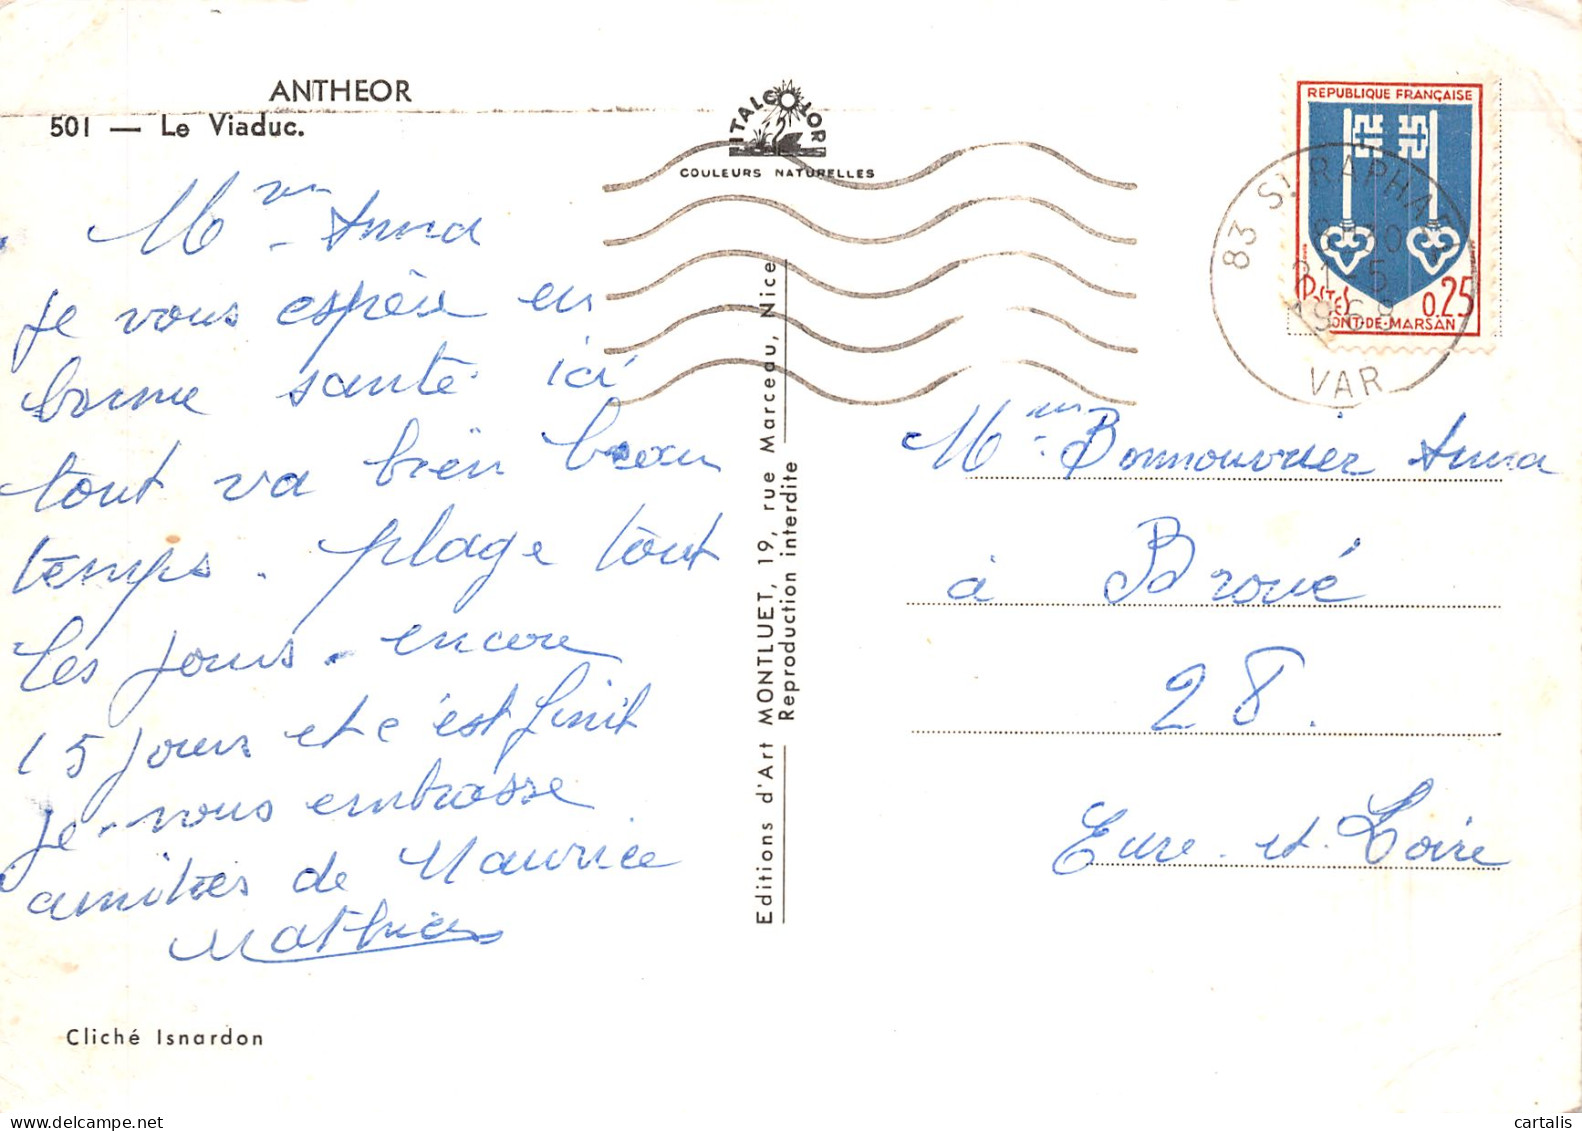 ANTHEOR
501 — Le Viaduc.
Mme Anna
je vous espère en
bonne santé. ici
tout va bien beau
temps. plage tout
les jours. encore
15 jours et c'est finit
je vous embrasse
amitiés de Maurice
Cliché Isnardon
ITALCOLOR
COULEURS NATURELLES
Editions d'Art MONTLUET, 19, rue Marceau, Nice
Reproduction interdite
REPUBLIQUE FRANÇAISE
POSTES 0.25
MONT-DE-MARSAN
83 St RAPHAEL
21-5
1968
VAR
Mme Bonnouvrier Anna
à Broué
28.
Eure et Loire
cartalis